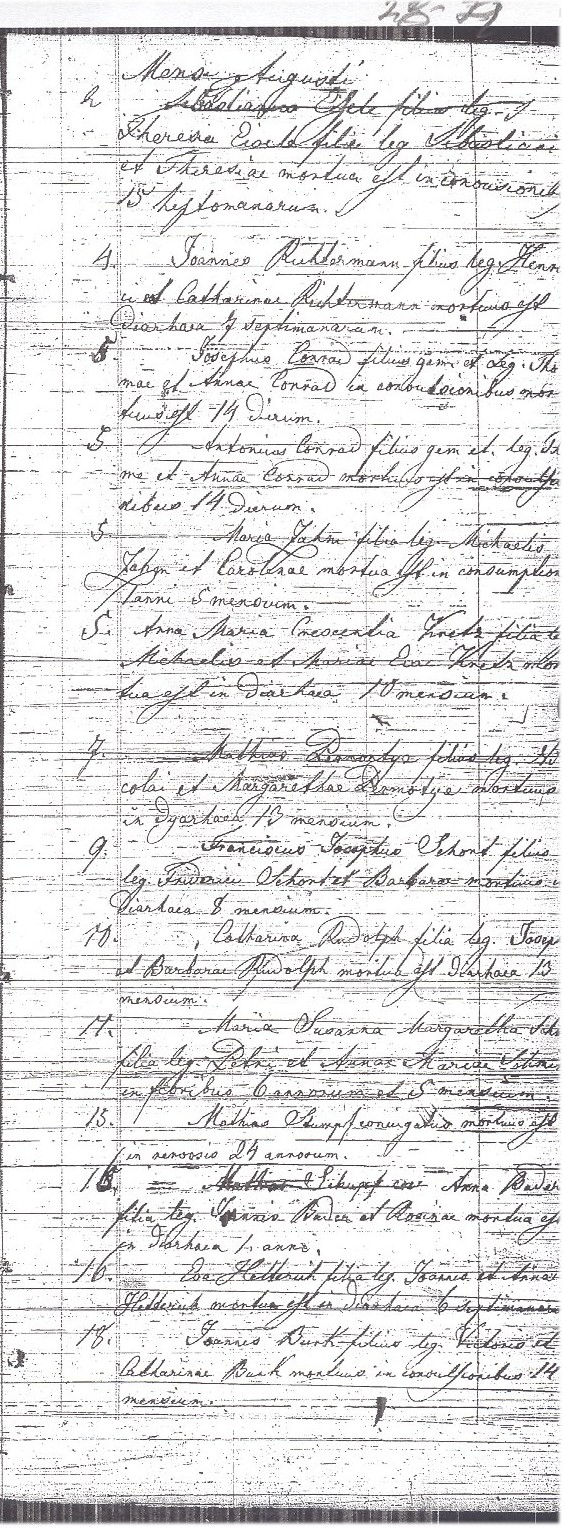 28-29
Mense Augusti
2 Eisele filius leg.
Theresia Eisele filia leg. Sebastiani
et Theresiae mortua est in convusionib
15 heptomanarum.
4. Joannes Richtermann filius leg. Henri
ci et Catharinae Richtermann mortuus est
Diarhaea 7 septimanarum.
5 Josephus Conrad filius gem. et leg. Tho
mae et Annae Conrad in convulsionibus mor
tuus est 14 dierum.
5 Antonius Conrad filius gem et. leg. Tho
me et Annae Conrad mortuus est in convulsio
nibus 14 Dierum.
5. Maria Jahn filia leg. Michaelis
Jahn et Carolinae mortua est in consumption
1 anni 5 mensium.
5. Anna Maria Crescentia Kretz filia le
Michaelis et Mariae Evae Kretz mor
tua est in diarhaea 10 mensium.
7. Mathias filius leg. Ni
colai et Margarethae mortuus
in dyarhaea 13 mensium.
9. Franciscus Josephus Schont filius
leg. Friderici Schont et Barbarae mortuus
Diarhaea 8 mensium.
10. Catharina Rudolph filia leg. Josep
et Barbarae Rudolph mortua est diarhaea 13
mensium.
11. Maria Susanna Margaretha
filia leg. Petri et Annae Mariae
in floribus 6 annorum et 5 mensium.
13. Mathias Stumpf conjugatus mortuus est
in 24 annorum.
15. Mathias Anna Bader
filia leg. Joannis Bader et Rosinae mortua es
in diarhaea 1. anni.
16. Eva Hetterich filia leg. Joannis et Annae
Hetterich mortua est in diarhaea 6 septimanaru
18. Joannes Burk filius leg. Victoris et
Catharinae Burk mortuus in convulsionibus 14
mensium.